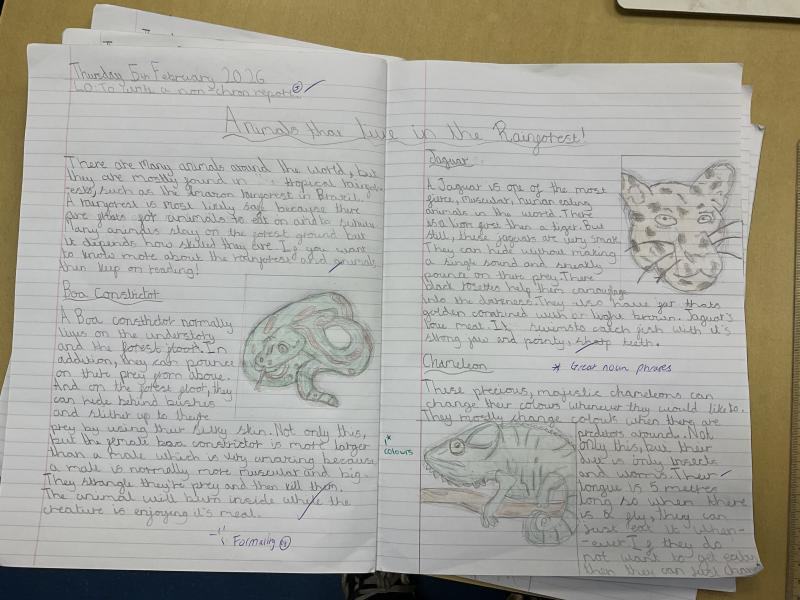 Thursday 5th February 2026
LO: To write a non-chron report
Animals that live in the Rainforest!
There are many animals around the world, but
they are mostly found in tropical rainfor-
-ests, such as the Amazon rainforest in Brazil.
A rainforest is most likely safe because there
are plants for animals to eat on and to
Many animals stay on the forest ground but
it depends how skilled they are. If you want
to know more about the rainforest and animals,
then keep on reading!
Boa Constrictor
A Boa constrictor normally
lives on the understory
and the forest floor. In
addition, they can pounce
on there prey from above.
And on the forest floor, they
can hide behind bushes
and slither up to there
prey by using their silky skin. Not only this,
but the female boa constrictor is more larger
than a male which is very amazing because
a male is normally more muscular and big.
They strangle they're prey and then kill them.
The animal will burn inside while the
creature is enjoying it's meal.
Formality
Jaguar
A Jaguar is one of the most
fierce, muscular, human eating
animals in the world. There
is a lion first then a tiger. But
still, these jaguars are very smart.
They can hide without making
a single sound and sneakly
pounce on there prey. There
black rosettes help them camouflage
into the darkness. They also have fur thats
golden combined with or light brown. Jaguar's
love meat. It swims to catch fish with it's
strong jaw and pointy, sharp teeth.
* Great noun phrases
Chameleon
These precious, majestic chameleons can
change their colours whenever they would like to.
They mostly change colours when there are
predators around. Not
only this, but their
diet is only insects
and worms. Their
tongue is 5 metres
long so when there
is a fly, they can
just eat it when-
-ever. If they do
not want to get eaten
then they can just
*
colours